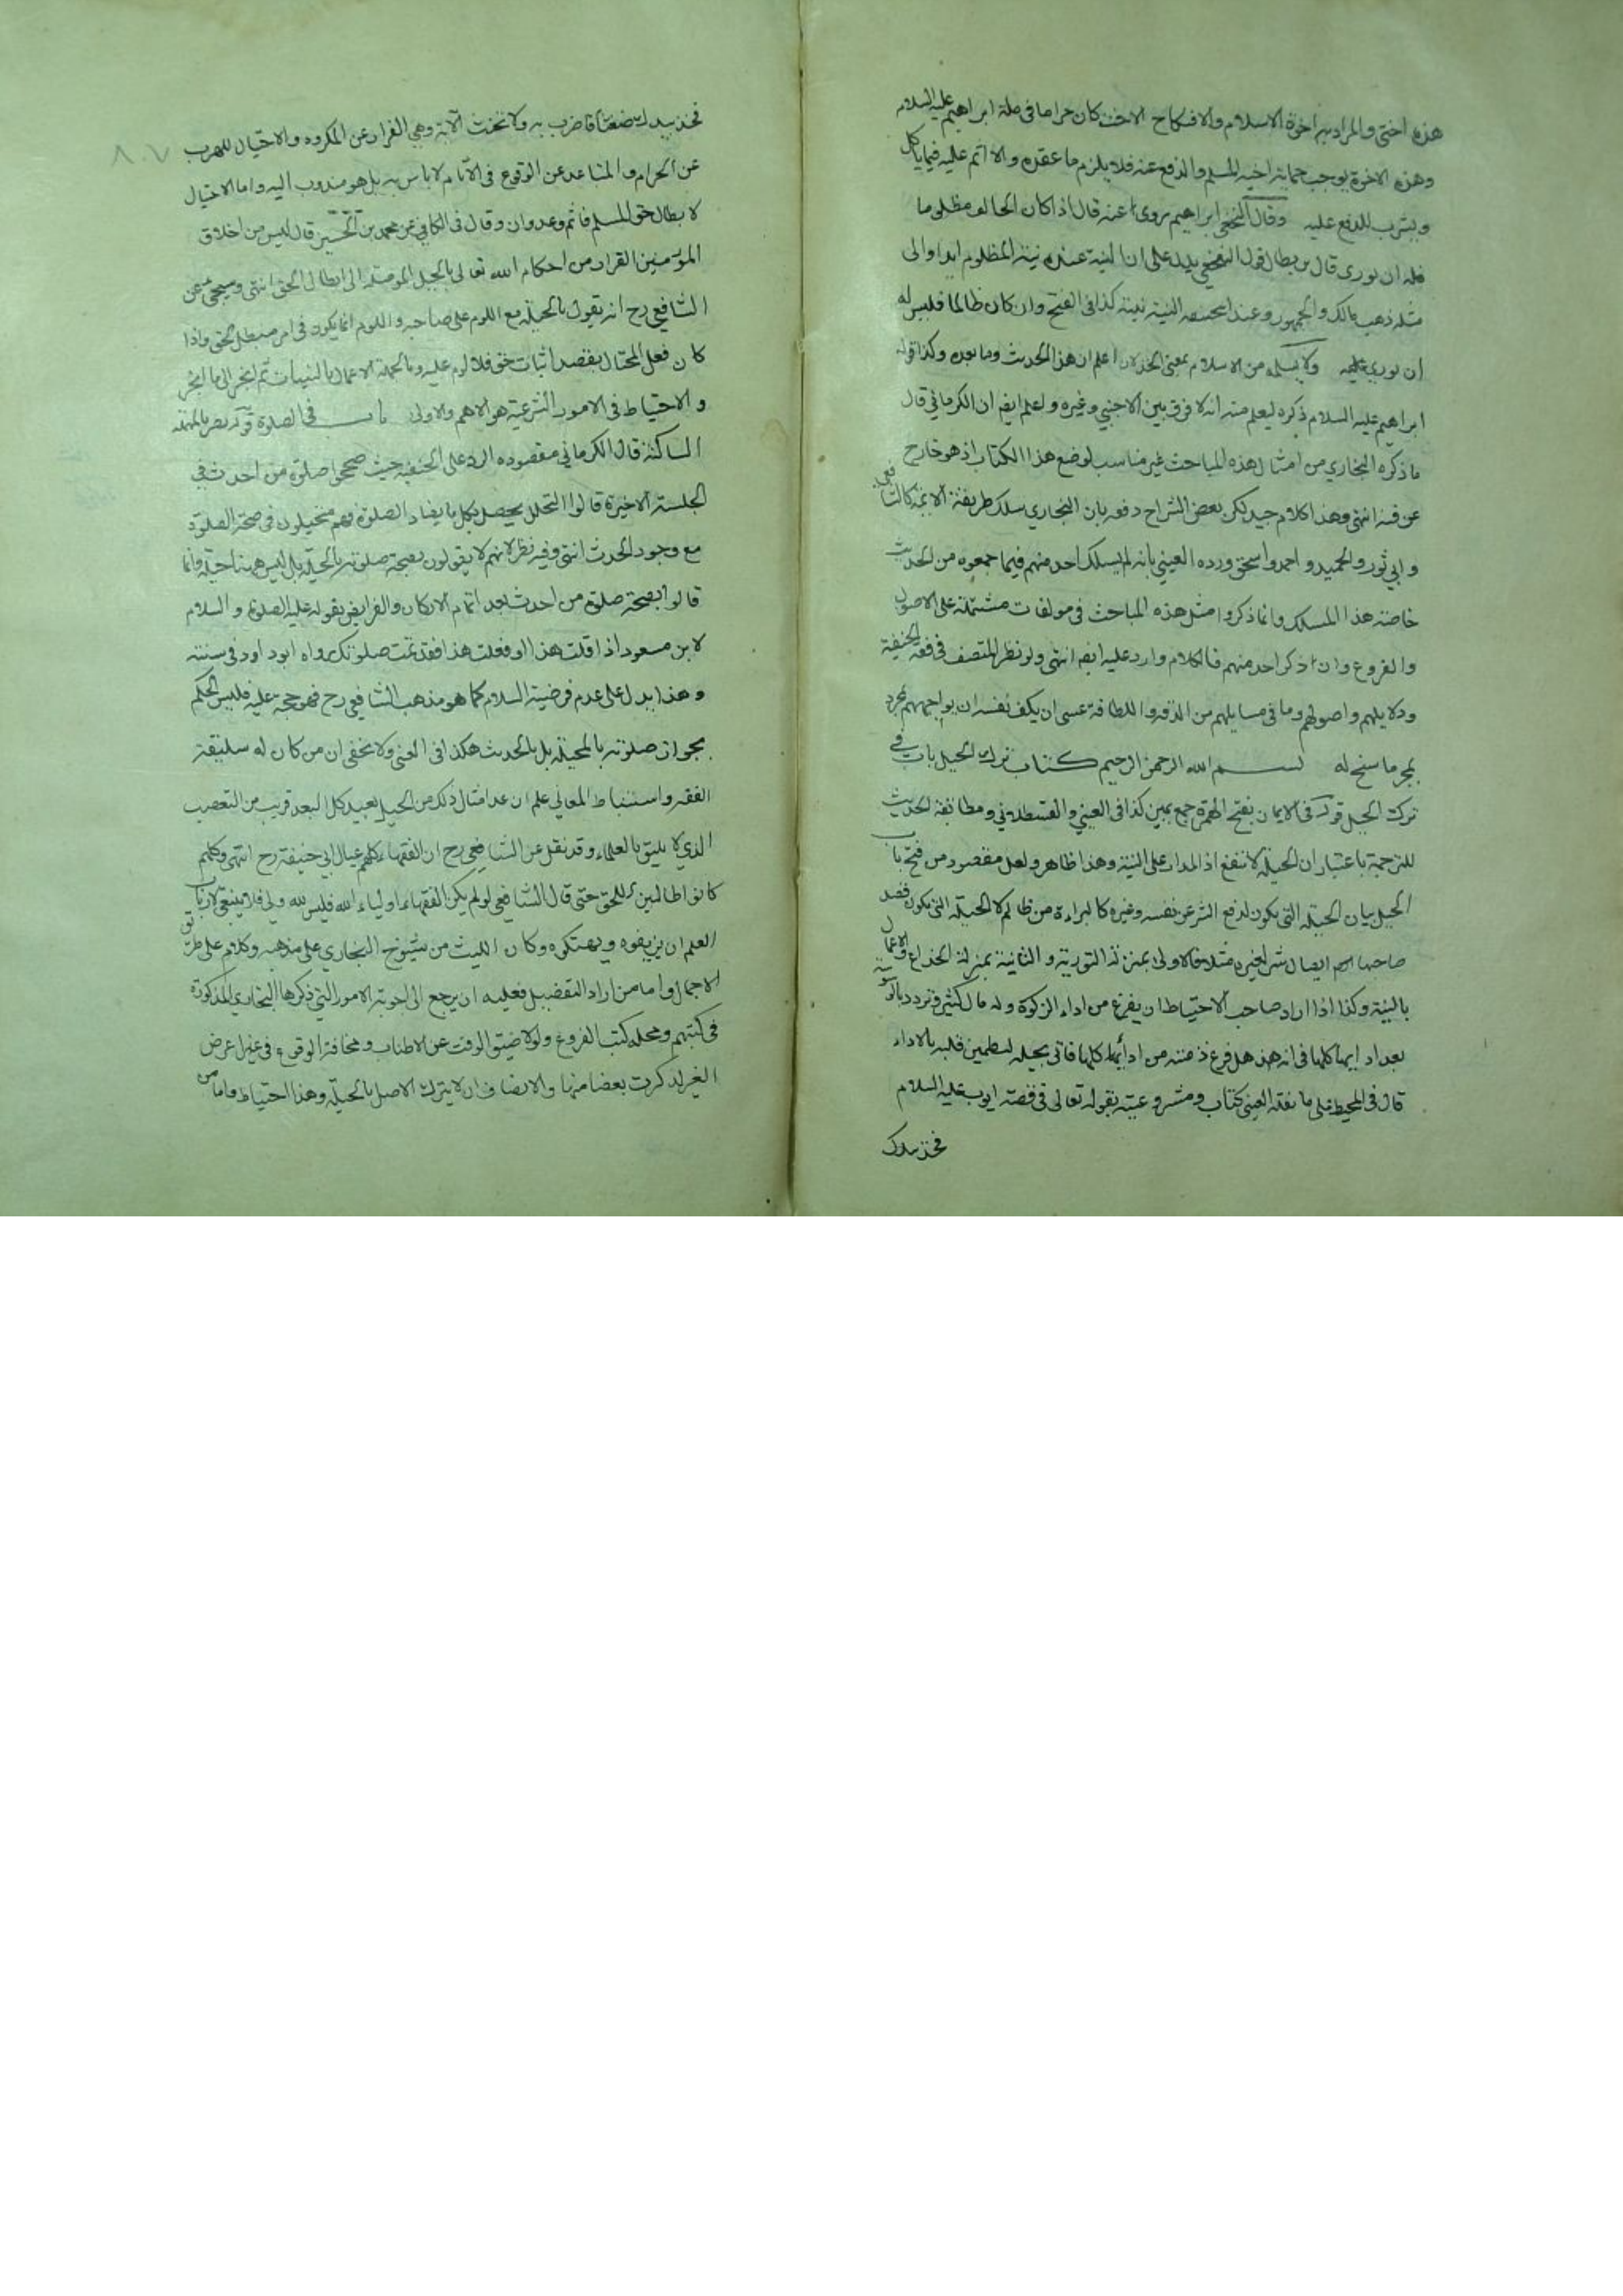 هذه اختي والمراد به اخوة الاسلام والا فنكاح الاخت كان حراما في ملة ابراهيم عليه السلام
وهذه الاخوة يوجب حماية اخيه المسلم والدفع عنه فلا يلزم ما عقده ولا اثم عليه فيما ياكل
ويشرب للدفع عليه وقال النخعي ابراهيم يروى عنه قال اذا كان الحالف مظلوما
فله ان يورى قال بن بطال قول النخعي يدل على ان النية عنده نية المظلوم ابدا والى
مثله ذهب مالك والجمهور وعند ابيحنيفه النية نيته كذا في الفتح وان كان ظالما فليس له
ان يورى ولا يسلمه من الاسلام بمعنى الخذلان اعلم ان هذا الحديث وما بعده وكذا قوله
ابراهيم عليه السلام ذكره ليعلم منه انه لا فرق بين الاجنبي وغيره واعلم ايضا ان الكرماني قال
ما ذكره البخاري من امثال هذه المباحث غير مناسب لوضع هذا الكتاب اذ هو خارج
عن فنه انتهى وهذا كلام جيد لكن بعض الشراح دفعه بان البخاري سلك طريقة الائمة كالشافعي
وابي ثور والحميد واحمد واسحق ورده العيني بانه لم يسلك احد منهم فيما جمعوه من الحديث
خاصة هذا المسلك وانما ذكروا مثل هذه المباحث في مولفات مشتملة على الاصول
والفروع وان ذكر احد منهم فالكلام وارد عليه ايضا انتهى ولو نظر المتصف في فقه الحنيفة
ودلايلهم واصولهم وما في مسايلهم من الدقة واللطافة عسى ان يكف نفسه ان يواجههم بمجرد
ما سنح له بسم الله الرحمن الرحيم كتاب ترك الحيل باب في
ترك الحيل قوله في الايمان بفتح الهمزة جمع يمين كذا في العيني والقسطلاني ومطابقة الحديث
للترجمة باعتبار ان الحيلة لا تنفع اذ المدار على النية وهذا ظاهر ولعل مقصوده من فتح باب
الحيل بيان الحيلة التي يكون لدفع الشر عن نفسه وغيره كالبراءة من ظالم لا الحيلة التي يكون قصد
صاحبها ايصال شر لغيره مثلا فالاولى بمنزلة التورية والثانية بمنزلة الخداع والاعمال
بالنية وكذا اذا اراد صاحب الاحتياط ان يفرغ من اداء الزكوة وله مال كثير وتردد
بعد اداءها كلها في انه هل فرغ ذمته من ادائها كلها فاتى بحيله ليطمين قلبه بالاداء
قال في المحيط على ما نقله العيني كتاب ومشروعيته بقوله تعالى في قصة ايوب عليه السلام
فخذ بيدك
فخذ بيدك ضغثا فاضرب به ولا تحنث الآية وهي الفرار عن المكروه والاحتيال للهرب
عن الحرام والتباعد عن الوقوع في الآثام لا باس به بل هو مندوب اليه واما الاحتيال
لابطال حق المسلم فاثم وعدوان وقال في الكافي عن محمد بن الحسن قال ليس من اخلاق
المؤمنين الفرار من احكام الله تعالى بالحيل الموصلة الى ابطال الحق انتهى وسيجئ عن
الشافعي رح انه يقول بالحيلة مع اللوم على صاحبه واللوم انما يكون في امر مبطل للحق واذا
كان فعل المحتال بقصد اثبات حق فلا لوم عليه وبالجملة الاعمال بالنيات
والاحتياط في الامور الشرعية هو الاهم والاولى باب في الصلوة قوله بالمهملة
الساكنة قال الكرماني مقصوده الرد على الحنفية حيث صححوا صلوة من احدث في
الجلسة الاخيرة قالوا التحلل يحصل بكل ما يضاد الصلوة وهم متحيلون في صحة الصلوة
مع وجود الحدث انتهى وفيه نظر لانهم لا يقولون بصحة صلوته بالحيلة بل ليس هنا حيلة وانما
قالوا بصحة صلوة من احدث بعد اتمام الاركان والفرايض بقوله عليه الصلوة والسلام
لابن مسعود اذا قلت هذا او فعلت هذا فقد تمت صلوتك رواه ابو داود في سننه
وهذا يدل على عدم فرضية السلام كما هو مذهب الشافعي رح فهو حجة عليه فليس الحكم
بجواز صلوته بالحيلة بل بالحديث هكذا في العيني ولا يخفى ان من كان له سليقة
الفقه واستنباط المعاني علم ان عد امثال ذلك من الحيل بعيد كل البعد قريب من التعصب
الذي لا يليق بالعلماء وقد نقل عن الشافعي رح ان الفقهاء كلهم عيال ابي حنيفة رح انتهى وكلهم
كانوا طالبين للحق حتى قال الشافعي لو لم يكن الفقهاء اولياء الله فليس لله ولي فلا ينبغي لارباب
العلم ان يزيفوه وكان الليث من شيوخ البخاري على مذهبه وكلام على طريق
الاجمال واما من اراد التفضيل فعليه ان يرجع الى اجوبة الامور التي ذكرها البخاري المذكورة
في كتبهم ومحله كتب الفروع ولولا ضيق الوقت عن الاطناب ومخافة الوقوع في غير اعرض
الغير لذكرت بعضا منها والانصاف ان لا يترك الاصل بالحيلة وهذا احتياط واما من